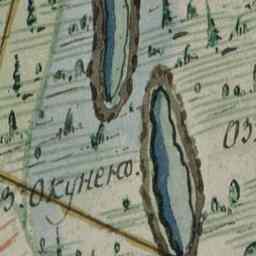 з. Окунево.
оз